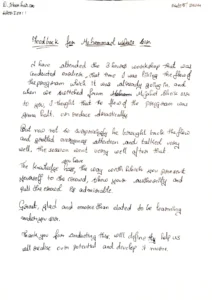 Feedback for Mohammad
I have attended the 3 hours workshop that was
conducted online, that time I was liking the flow of
the program which it was already going in and
when we switched from
to you, I thought that the flow of the program was
gone
But now not so surprisingly he brought back the flow
and grabbed everyone attention and talked very
well, the session went very well after that
you have
The knowledge, the way you present
yourself to the crowd, show your authority and
pull the crowd is admirable.
Great, glad and more than elated to be learning
under you sir.
Thank you for conducting this will definitely help us
all realise our potential and develop it more